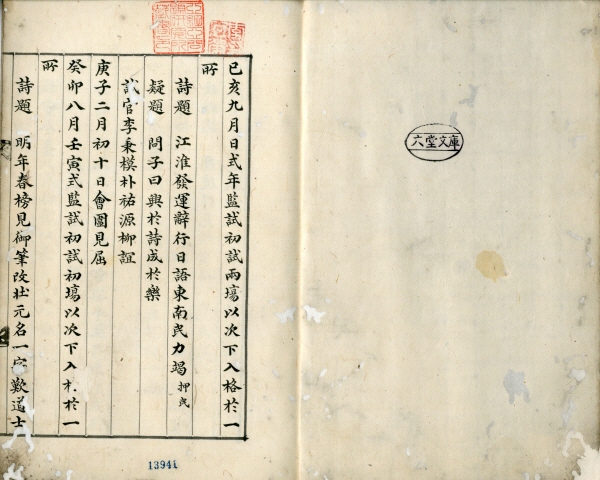 六堂文庫
己亥九月日式年監試初試兩場以次下入格於一
所
詩題 江淮發運辭行日語東南民力竭 押民
疑題 問子曰興於詩成於樂
試官李秉模朴祐源柳誼
庚子二月初十日會圍見屈
癸卯八月壬寅式監試初試初場以次下入札於一
所
詩題 明年春榜見御筆改壯元名一字歎道士
13941